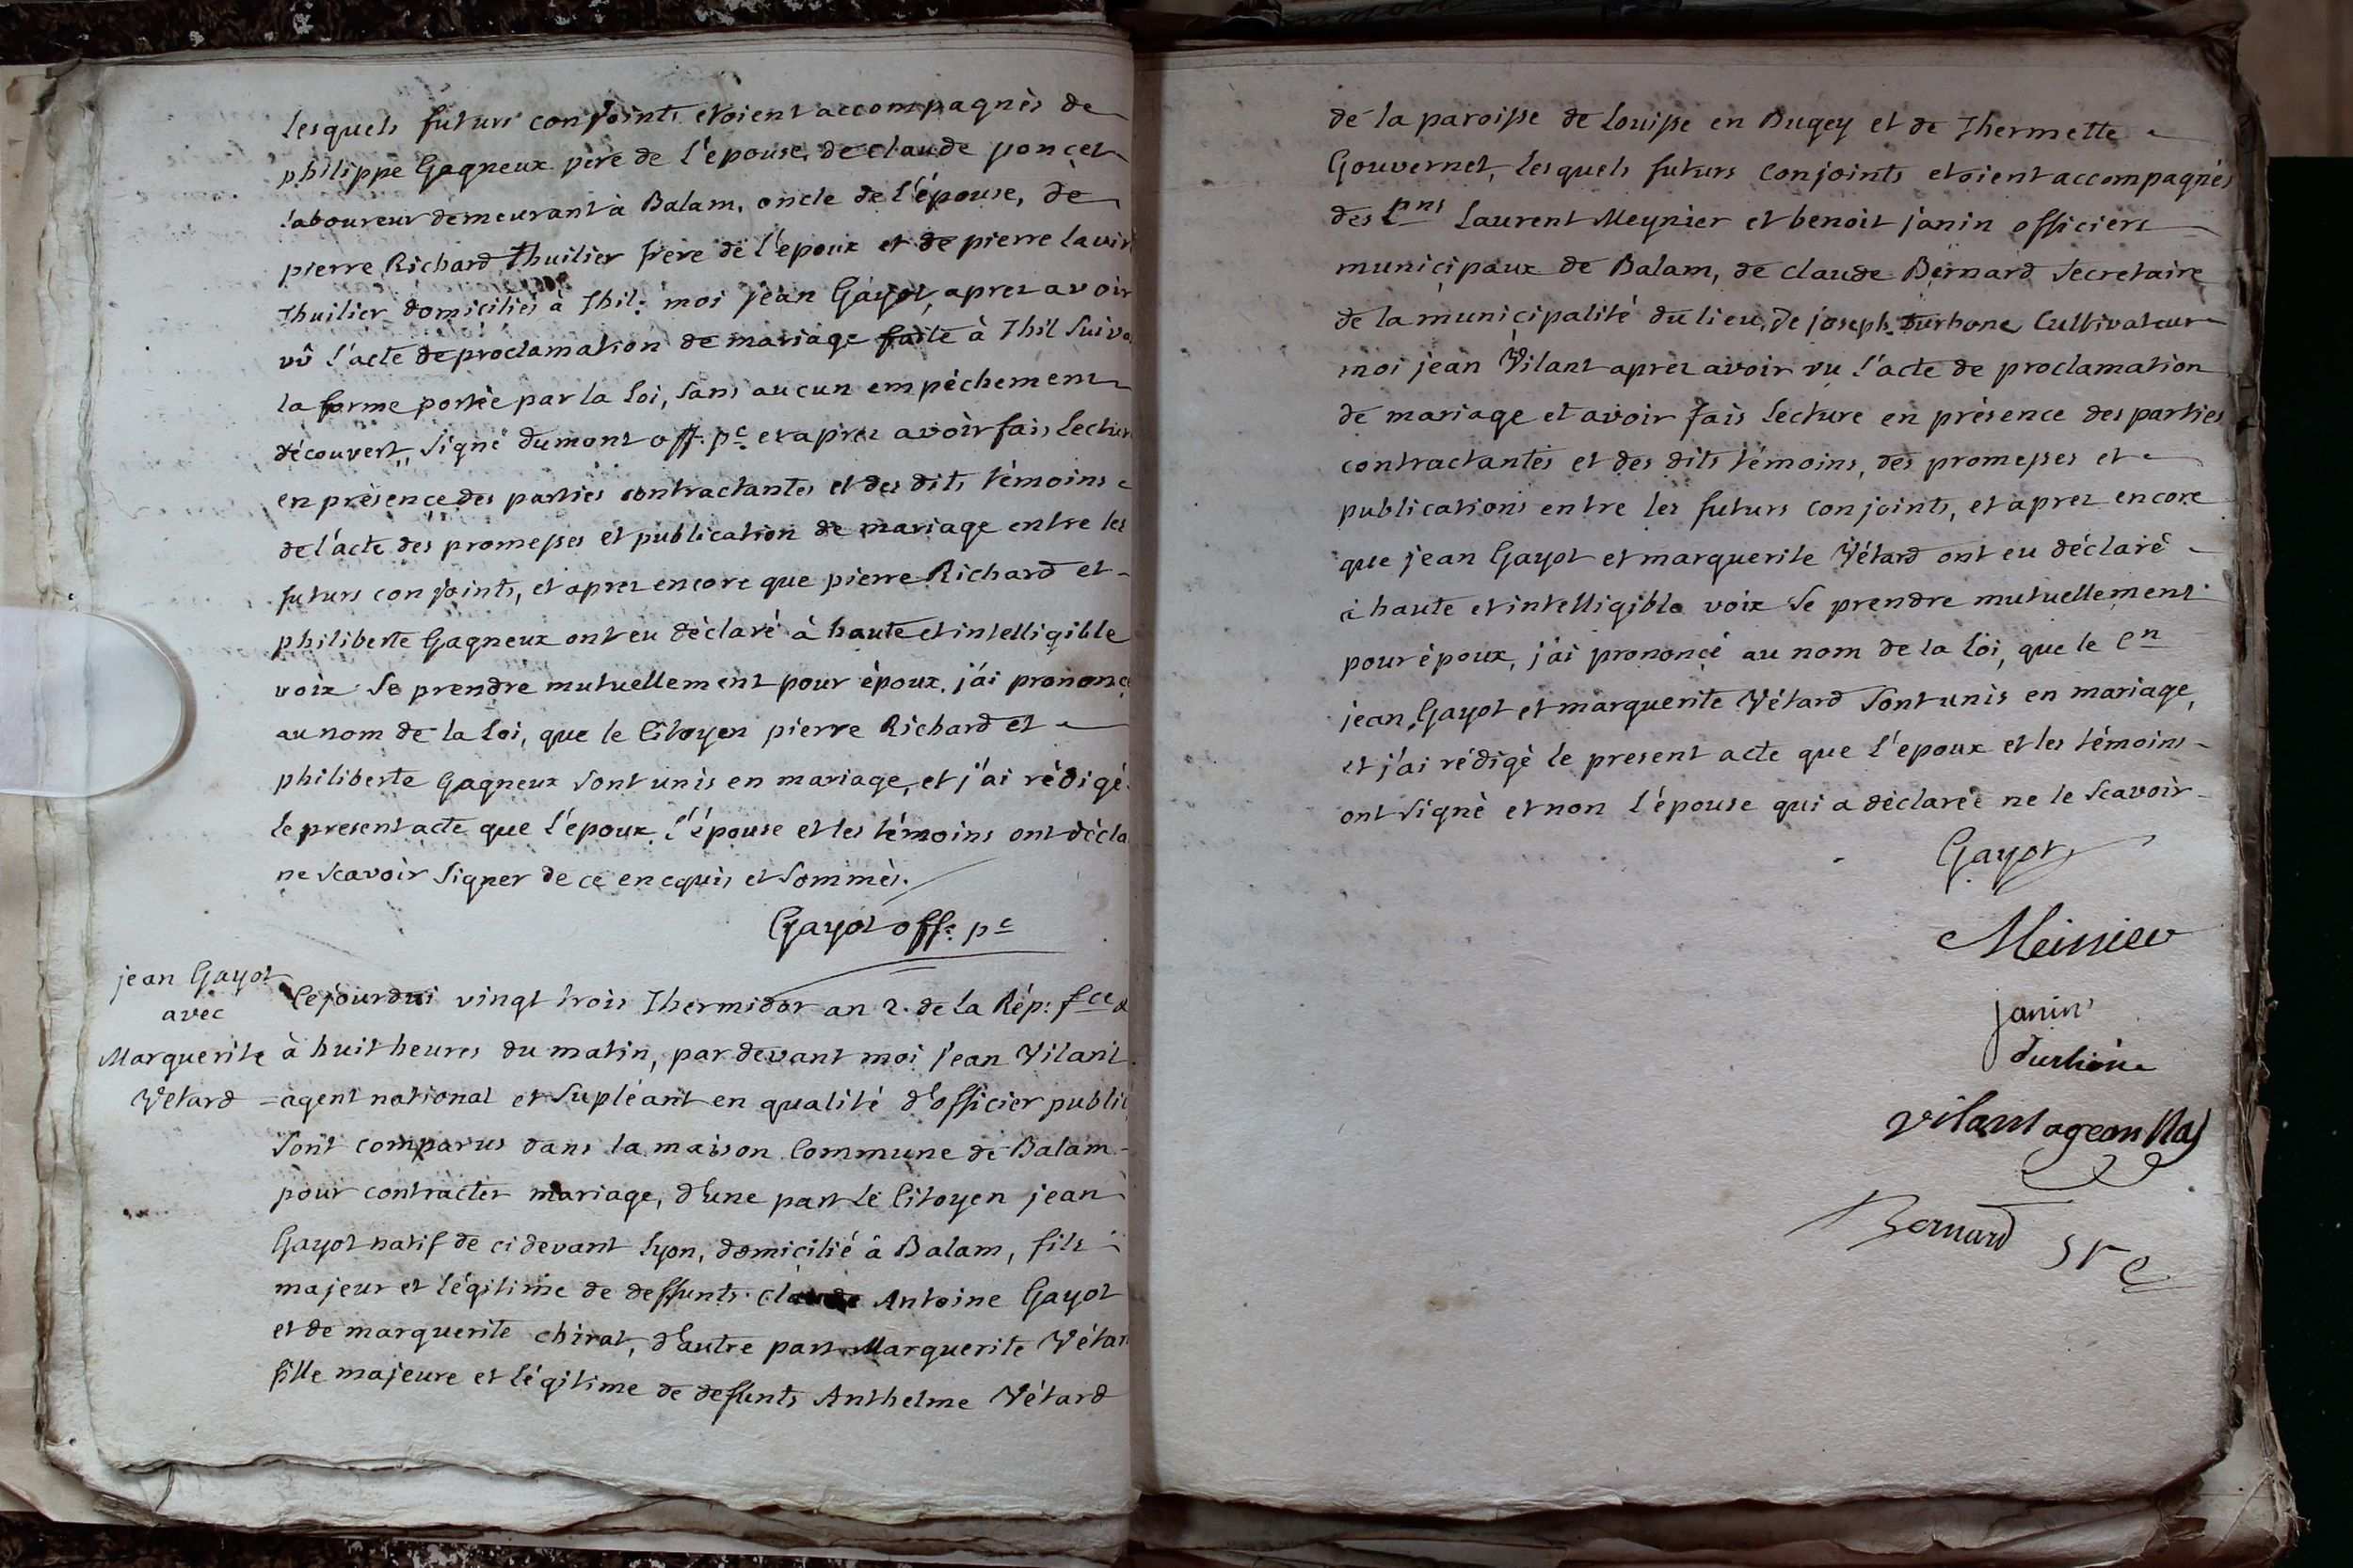 lesquels futurs conjoints etoient accompagnès de
philippe Gagneux père de l'epouse, de claude ponçet
laboureur demeurant à Balam, oncle de l'épouse, de
pierre Richard thuilier frere de l'epoux et de pierre lavir
thuilier domiciliés à Thil: moi jean Gayot, aprez avoir
vû l'acte de proclamation de mariage faite à Thil suiva
la forme portée par la loi, sans aucun empéchement
découvert, signé dumont off. pc et aprez avoir fais lectur
en présence des parties contractantes et des dits témoins
de l'acte des promesses et publication de mariage entre les
futurs conjoints, et aprez encore que pierre Richard et
philiberte Gagneux ont eu déclaré à haute et intelligible
voix se prendre mutuellement pour époux, j'ai prononcé
au nom de la loi, que le Citoyen pierre Richard et
philiberte Gagneux sont unis en mariage, et j'ai rédigé
le present acte que l'époux l'épouse et les témoins ont décla
ne scavoir signer de ce encquis et sommés.
Gayot off. pc
jean Gayot
avec
Marguerite
Vétard
Cejourdui vingt trois Thermidor an 2. de la Rép: fce
à huit heures du matin, pardevant moi jean Vilant
agent national et supléant en qualité d'officier public
sont comparus dans la maison Commune de Balam
pour contracter mariage, d'une part le Citoyen jean
Gayot natif de ci devant Lyon, domicilié à Balam, fils
majeur et légitime de deffunts Antoine Gayot
et de marguerite chirat, d'autre part Marguerite Vétar
fille majeure et légitime de defunts Anthelme Vétard
de la paroisse de Louisse en Bugey et de Thermette
Gouvernet, lesquels futurs conjoints etoient accompagnés
des Cns Laurent Meynier et benoit janin officiers
municipaux de Balam, de claude Bernard secretaire
de la municipalité du lieu, de joseph Durhone Cultivateur
moi jean Vilant aprez avoir vu l'acte de proclamation
de mariage et avoir fais lecture en présence des parties
contractantes et des dits témoins, des promesses et
publications entre les futurs conjoints, et aprez encore
que jean Gayot et marguerite Vétard ont eu déclaré
à haute et intelligible voix se prendre mutuellement
pour époux, j'ai prononcé au nom de la loi, que le Cn
jean Gayot et marguerite Vétard sont unis en mariage,
et j'ai rédigé le present acte que l'epoux et les témoins
ont signé et non l'épouse qui a déclarée ne le scavoir
Gayot
Meinier
janin
durhône
vilant agean Nal
Bernard sre